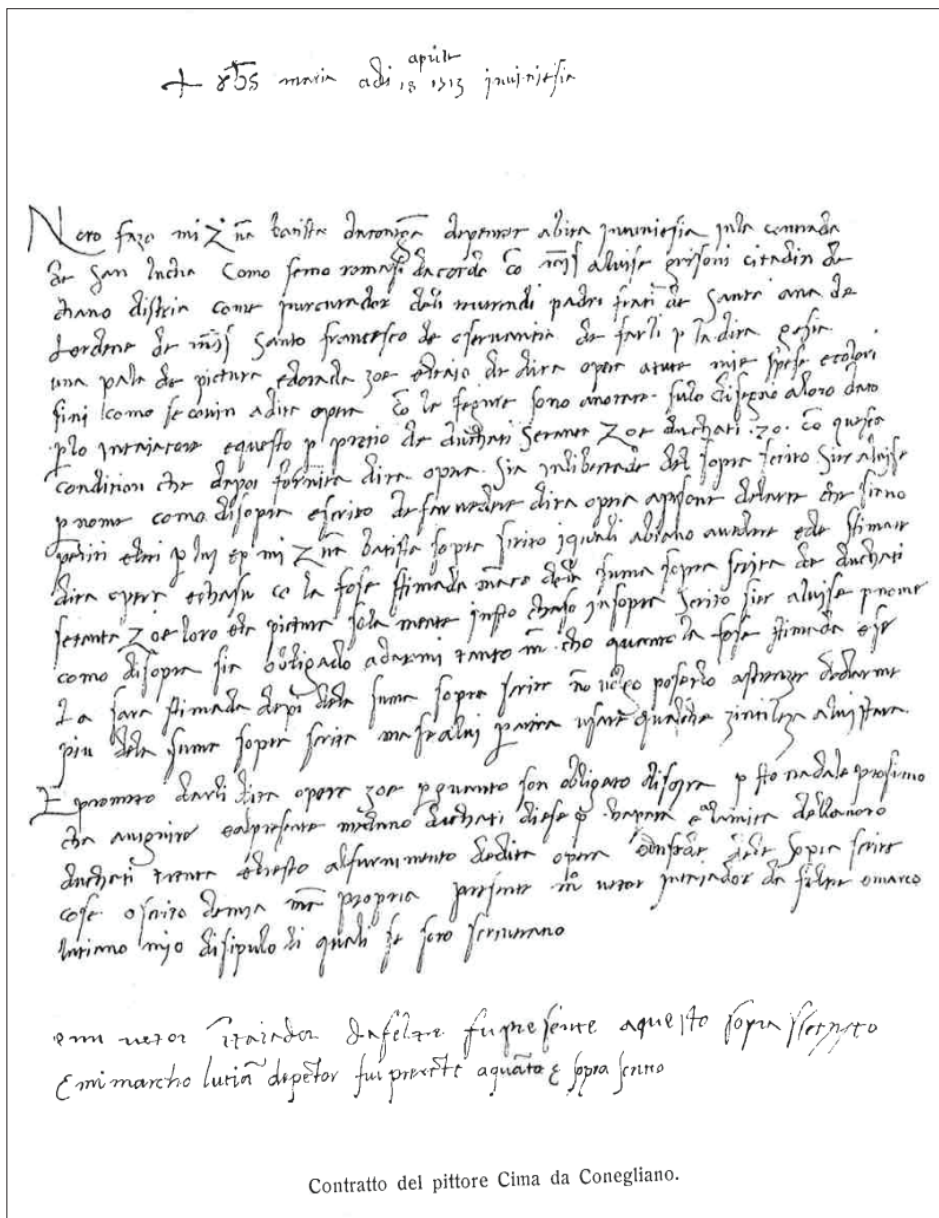 yhs maria adi 18 aprile 1513 in veniesia
Noto fazo mi Zuã batista da depentor abita in veniesia in la contrada
de san lucha como semo romasi dacordo cõ mis aluise grisoni citadin de
chavo distria come procurador deli padri frati de santa ana de
lordene de mis santo francesco de oservantia de farli p la dita gesia
una pala de pictura edorada zoe de dita opera atute mie spese ecolori
fini como se convin adita opera cõ le sono anotate sulo disegno aloro dato
plo intaiatore equesto p precio de duchati setanta zoe duchati .70. cõ questa
condition che dapoi fornita dita opera sia inlibertade del sopra scrito sier aluise
p nome como disopra escrito de far vedere dita opera apersone che siano
periti p lui ep mi Zuã batista sopra scrito iquali abiano avedere ede stimare
dita opera echasu cõ la fose stimada mãco dela suma sopra scrita de duchati
setanta zoe loro ela pictura sola mente insto chaso insopra scrito sier aluise p nome
como disopra sia obligado adarmi tanto mãcho quanto la fose stimada ese
la sara stimada depi dela suma sopra scrita nõ voleo poserlo astrenzer dedarme
piu dela suma sopra scrita ma sealui parera usare qualche zintileza aluistara.
E prometo darli dita opera zoe p quanto son obligato disopra p sto nadale prosimo
cha avignire ealpresente medano duchati diese p chapara ealamita dellavoro
duchati trenta elresto alfornimento dedita opera dele sopra scrite
cose o scrito demia mã propria presente mo vetor intaiador da feltre emarco
luciano mio disipulo li quali se soto scriverano
e mi vetor ĩtaiador dafeltre fu presente aquesto sopra scrito
E mi marcho luciã depẽtor fui presẽte aquãto e sopra scrito
Contratto del pittore Cima da Conegliano.